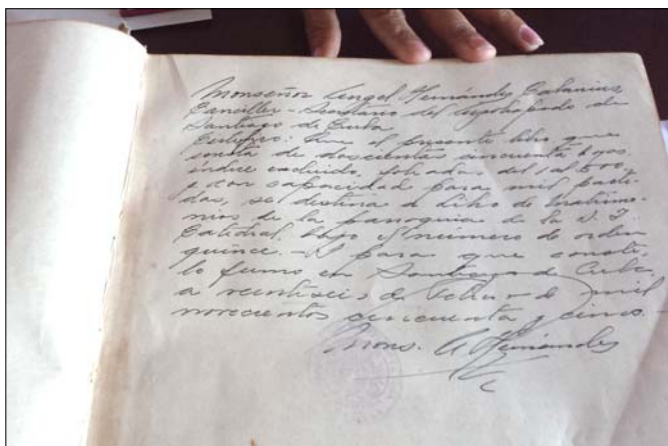 Monseñor Angel Hernández
Canciller-Secretario del Arzobispado de
Santiago de Cuba
Certifico: Que el presente libro que
consta de doscientas cincuenta hojas,
índice excluido, foliadas del 1 al 500,
y con capacidad para mil parti-
das, se destina a Libro de Matrimo-
nios de la parroquia de la S. I.
Catedral, bajo el número de orden
quince.- Y para que conste
lo firmo en Santiago de Cuba,
a veintiseis de de mil
novecientos cincuenta y cinco.
Mons. A Hernández